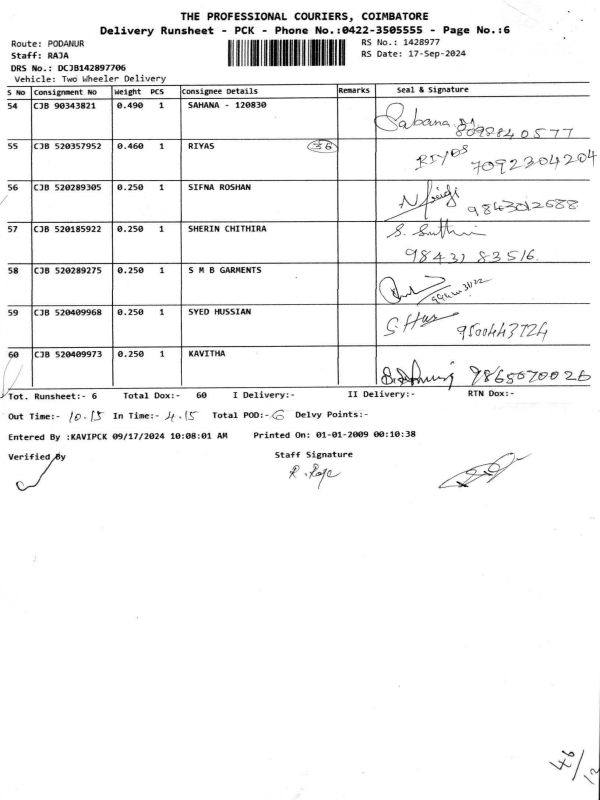 THE PROFESSIONAL COURIERS, COIMBATORE
Delivery Runsheet - PCK - Phone No.:0422-3505555 - Page No.:6
Route: PODANUR RS No.: 1428977
Staff: RAJA RS Date: 17-Sep-2024
DRS No.: DCJB142897706
Vehicle: Two Wheeler Delivery
S No Consignment No Weight PCS Consignee Details Remarks Seal & Signature
54 CJB 90343821 0.490 1 SAHANA - 120830
8098840577
55 CJB 520357952 0.460 1 RIYAS 36
RIYOS 7092304204
56 CJB 520289305 0.250 1 SIFNA ROSHAN
9843012688
57 CJB 520185922 0.250 1 SHERIN CHITHIRA
98431 83516
58 CJB 520289275 0.250 1 S M B GARMENTS
59 CJB 520409968 0.250 1 SYED HUSSIAN
9500443724
60 CJB 520409973 0.250 1 KAVITHA
9865070026
Tot. Runsheet:- 6 Total Dox:- 60 I Delivery:- II Delivery:- RTN Dox:-
Out Time:- 10.15 In Time:- 4.15 Total POD:- 6 Delvy Points:-
Entered By :KAVIPCK 09/17/2024 10:08:01 AM Printed On: 01-01-2009 00:10:38
Verified By Staff Signature
R. Raja
46/12